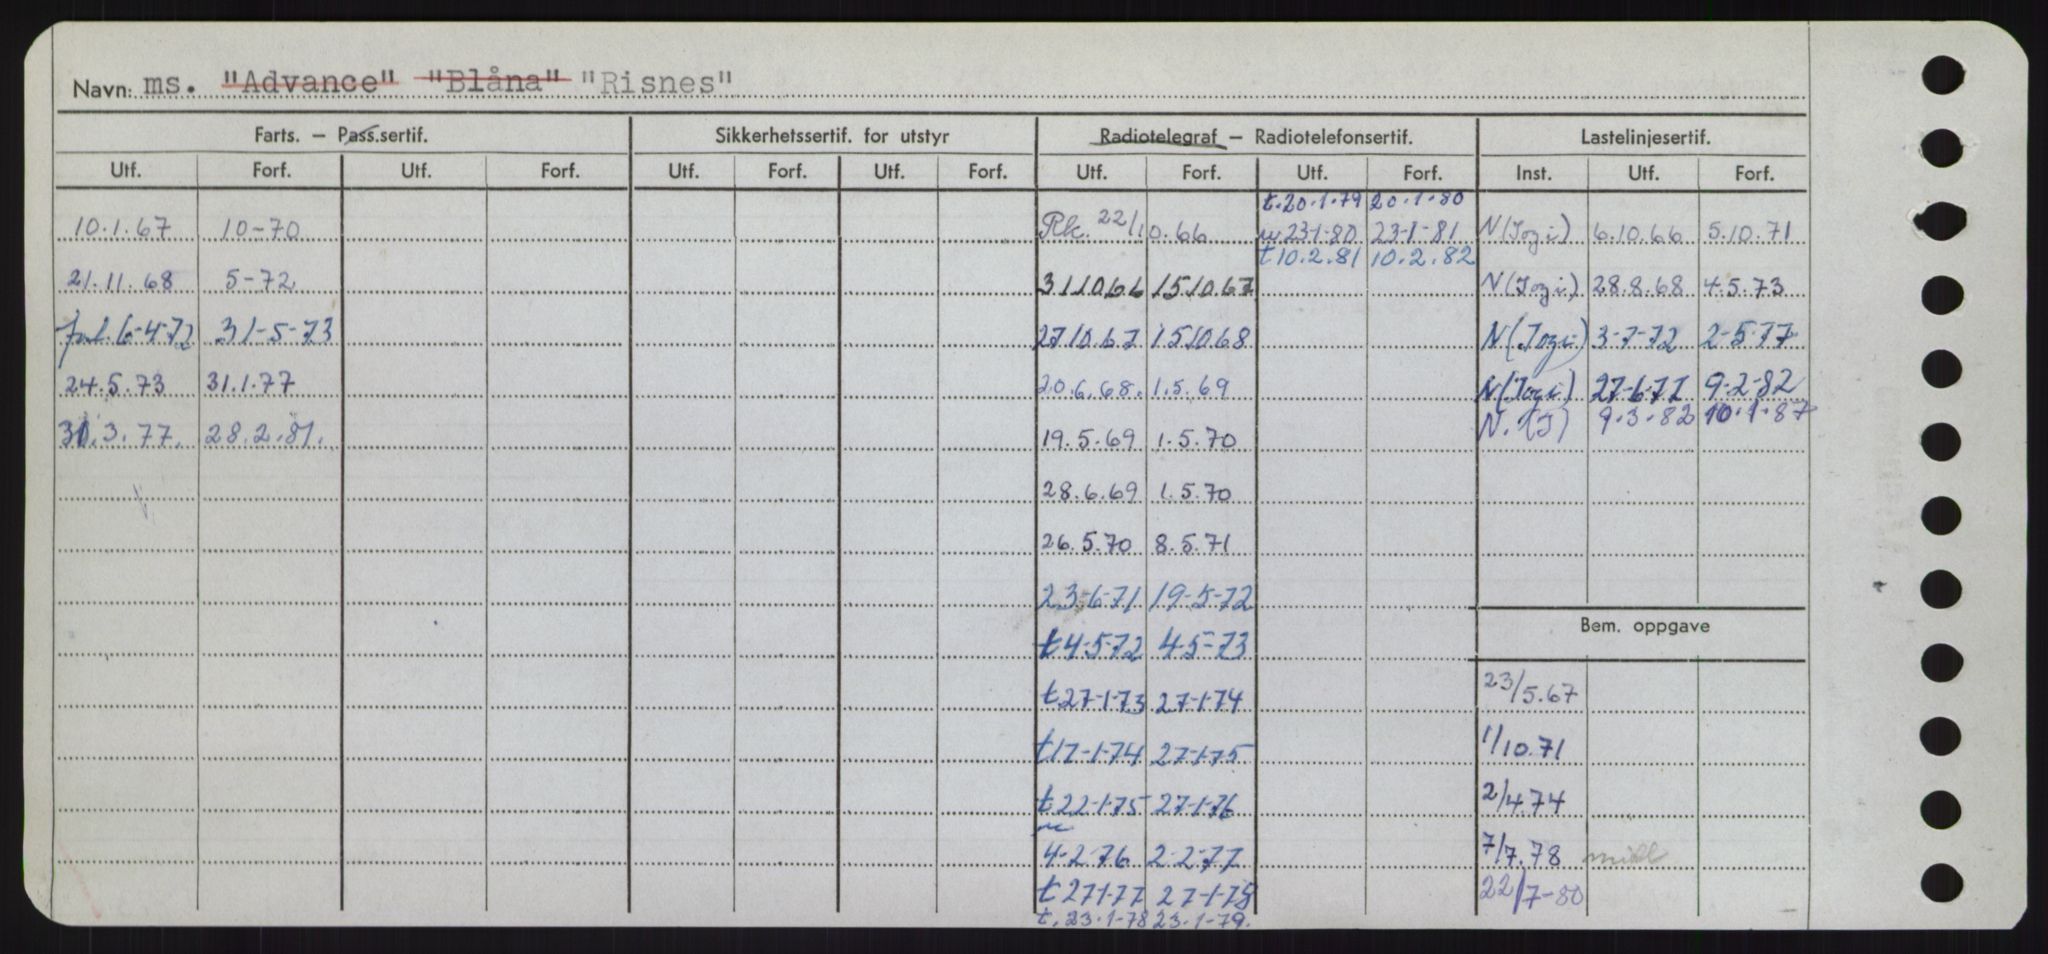 Navn: ms. "Advance" "Blåna" "Risnes"
Farts. – Pass.sertif. Sikkerhetssertif. for utstyr Radiotelegraf – Radiotelefonsertif. Lastelinjesertif.
Utf. Forf. Utf. Forf. Utf. Forf. Utf. Forf. Utf. Forf. Utf. Forf. Inst. Utf. Forf.
t.20.1.79 20.1.80
10.1.67 10-70 Rk. 22/10.66 w 23-1-80 23-1-81 N(Jozi) 6.10.66 5.10.71
t10.2.81 10.2.82
21.11.68 5-72 311066 151067 N(Jozi) 28.8.68 4.5.73
6-4-72 31-5-73 2710.67 151068 N(Jozi) 3-7-72 2-5-77
24.5.73 31.1.77 20.6.68. 1.5.69 N(Jozi) 27-6-77 9-2-82
N.(J) 9.3.82 10.1-87
31.3.77. 28.2.81. 19.5.69 1.5.70
28.6.69 1.5.70
26.5.70 8.5.71
23-6-71 19-5-72
Bem. oppgave
t4-5-72 4-5-73
t27-1-73 27-1-74 23/5.67
t17-1-74 27-1-75 1/10.71
t22-1-75 27-1-76 2/4.74
4-2-76 2-2-77 7/7.78
t27-1-77 27-1-78 22/7-80
t.23.1-78 23.1-79.